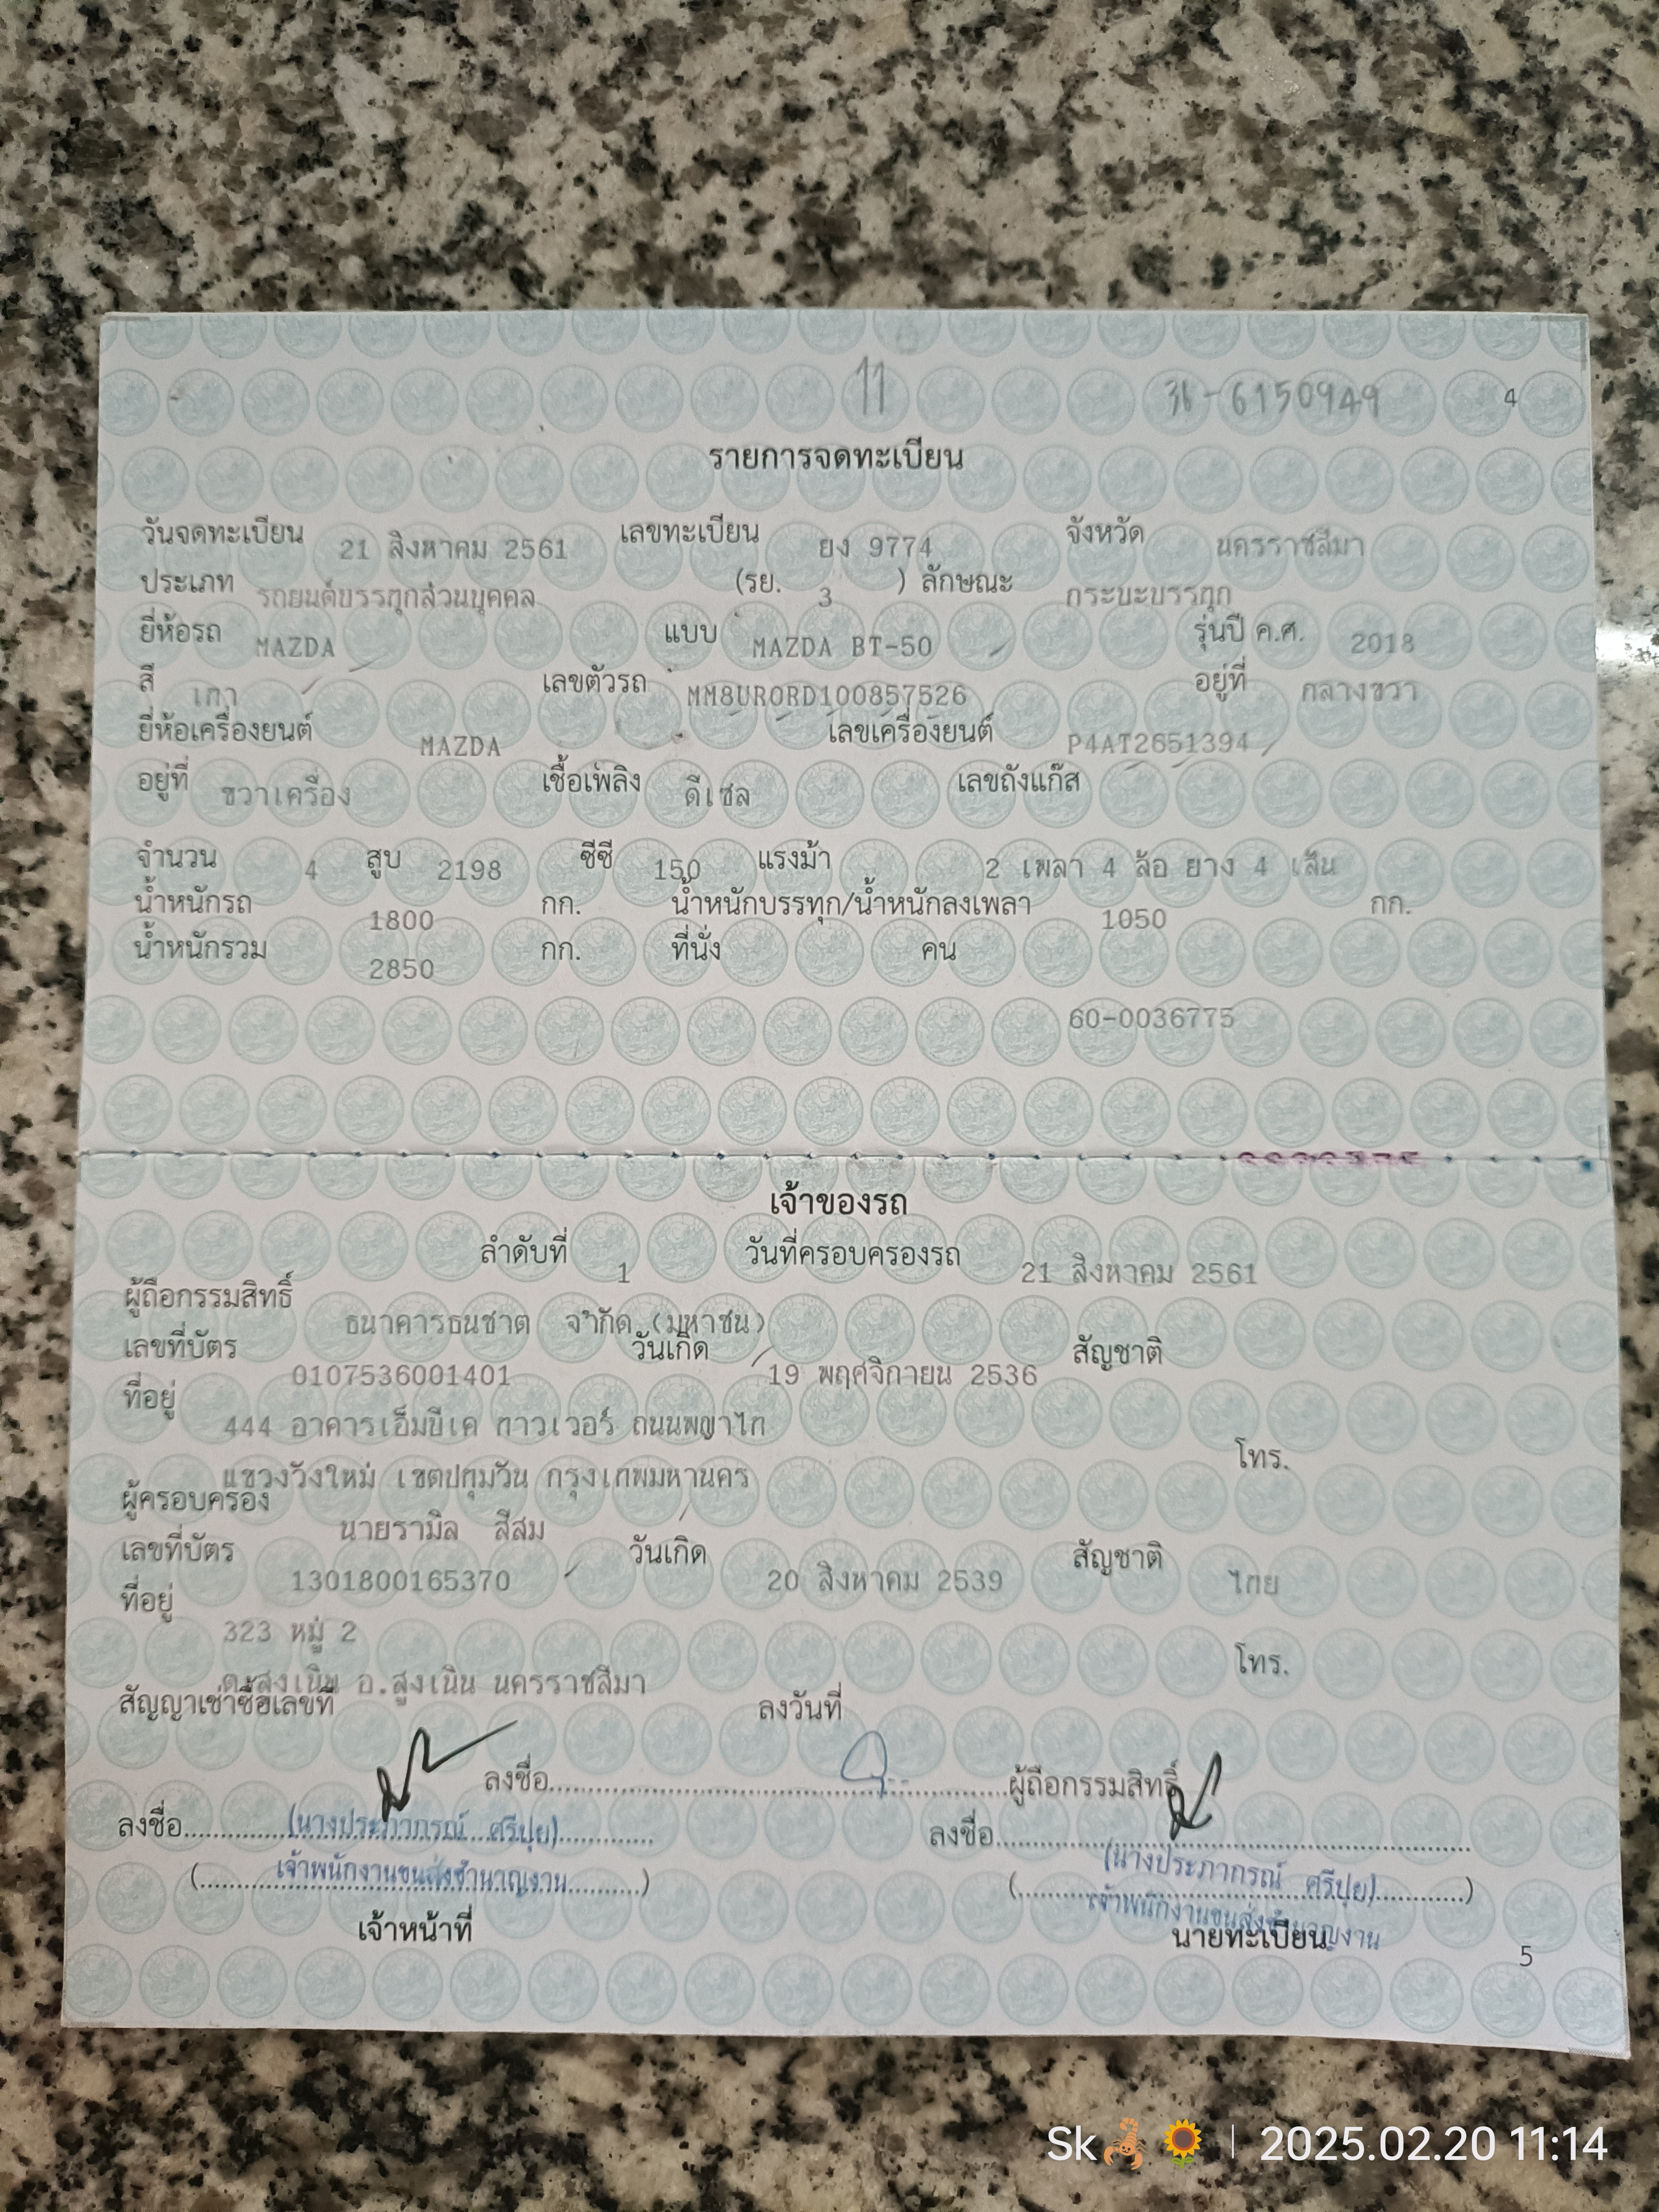 11 36-6150949 4
รายการจดทะเบียน
วันจดทะเบียน 21 สิงหาคม 2561 เลขทะเบียน ยง 9774 จังหวัด นครราชสีมา
ประเภท รถยนต์บรรทุกส่วนบุคคล (รย. 3 ) ลักษณะ กระบะบรรทุก
ยี่ห้อรถ MAZDA แบบ MAZDA BT-50 รุ่นปี ค.ศ. 2018
สี เทา เลขตัวรถ MM8UR0RD100857526 อยู่ที่ กลางขวา
ยี่ห้อเครื่องยนต์ MAZDA เลขเครื่องยนต์ P4AT2651394
อยู่ที่ ขวาเครื่อง เชื้อเพลิง ดีเซล เลขถังแก๊ส
จำนวน 4 สูบ 2198 ซีซี 150 แรงม้า 2 เพลา 4 ล้อ ยาง 4 เส้น
น้ำหนักรถ 1800 กก. น้ำหนักบรรทุก/น้ำหนักลงเพลา 1050 กก.
น้ำหนักรวม 2850 กก. ที่นั่ง คน
60-0036775
เจ้าของรถ
ลำดับที่ 1 วันที่ครอบครองรถ 21 สิงหาคม 2561
ผู้ถือกรรมสิทธิ์ ธนาคารธนชาต จำกัด (มหาชน)
เลขที่บัตร 0107536001401 วันเกิด 19 พฤศจิกายน 2536 สัญชาติ
ที่อยู่ 444 อาคารเอ็มบีเค ทาวเวอร์ ถนนพญาไท
แขวงวังใหม่ เขตปทุมวัน กรุงเทพมหานคร โทร.
ผู้ครอบครอง นายรามิล สีสม
เลขที่บัตร 1301800165370 วันเกิด 20 สิงหาคม 2539 สัญชาติ ไทย
ที่อยู่ 323 หมู่ 2
ต.สูงเนิน อ.สูงเนิน นครราชสีมา โทร.
สัญญาเช่าซื้อเลขที่ ลงวันที่
ลงชื่อ ผู้ถือกรรมสิทธิ์
ลงชื่อ (นางประภาภรณ์ ศรีปุย) ลงชื่อ (นางประภาภรณ์ ศรีปุย)
(เจ้าพนักงานขนส่งชำนาญงาน) (เจ้าพนักงานขนส่งชำนาญงาน)
เจ้าหน้าที่ นายทะเบียน
5
Sk🦂🌻 | 2025.02.20 11:14